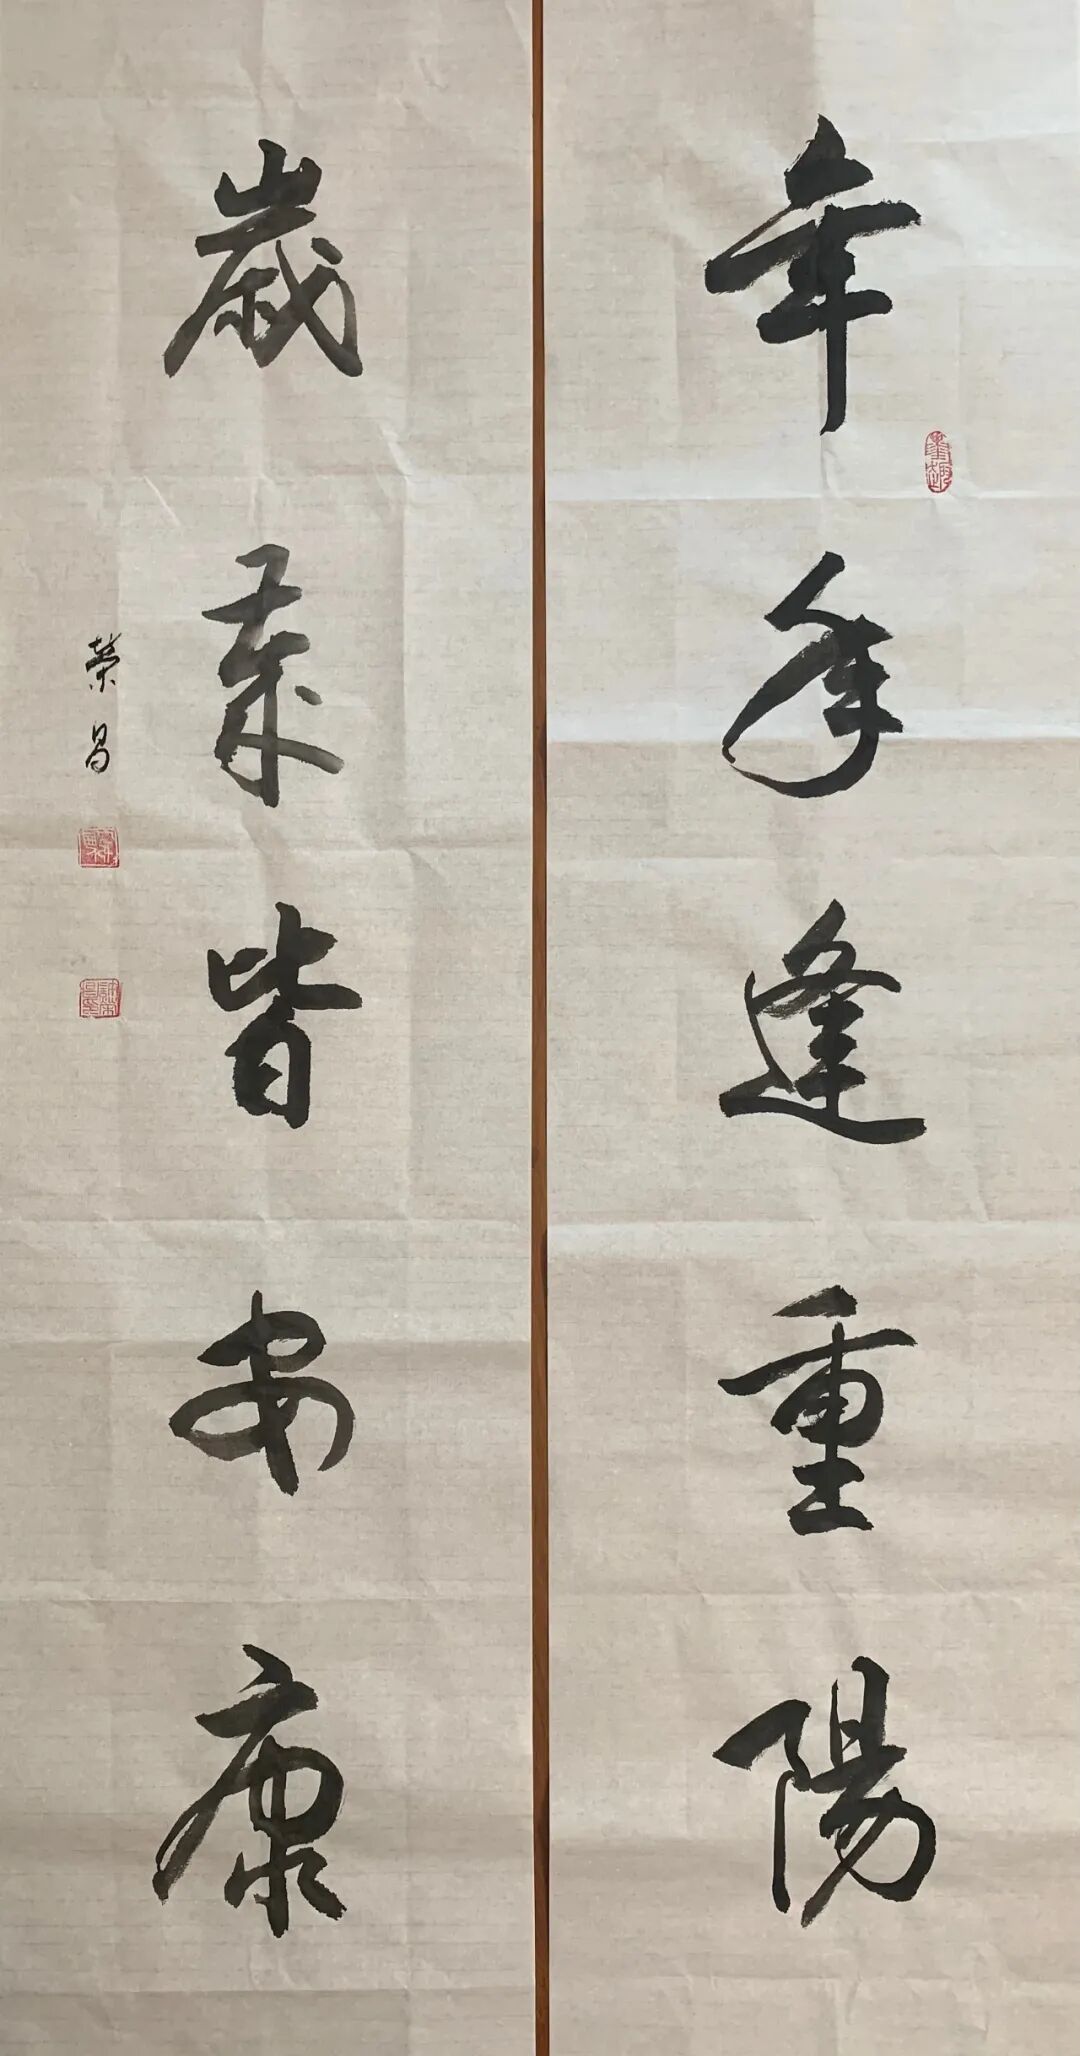 年年逢重陽
歲歲皆安康
榮昌